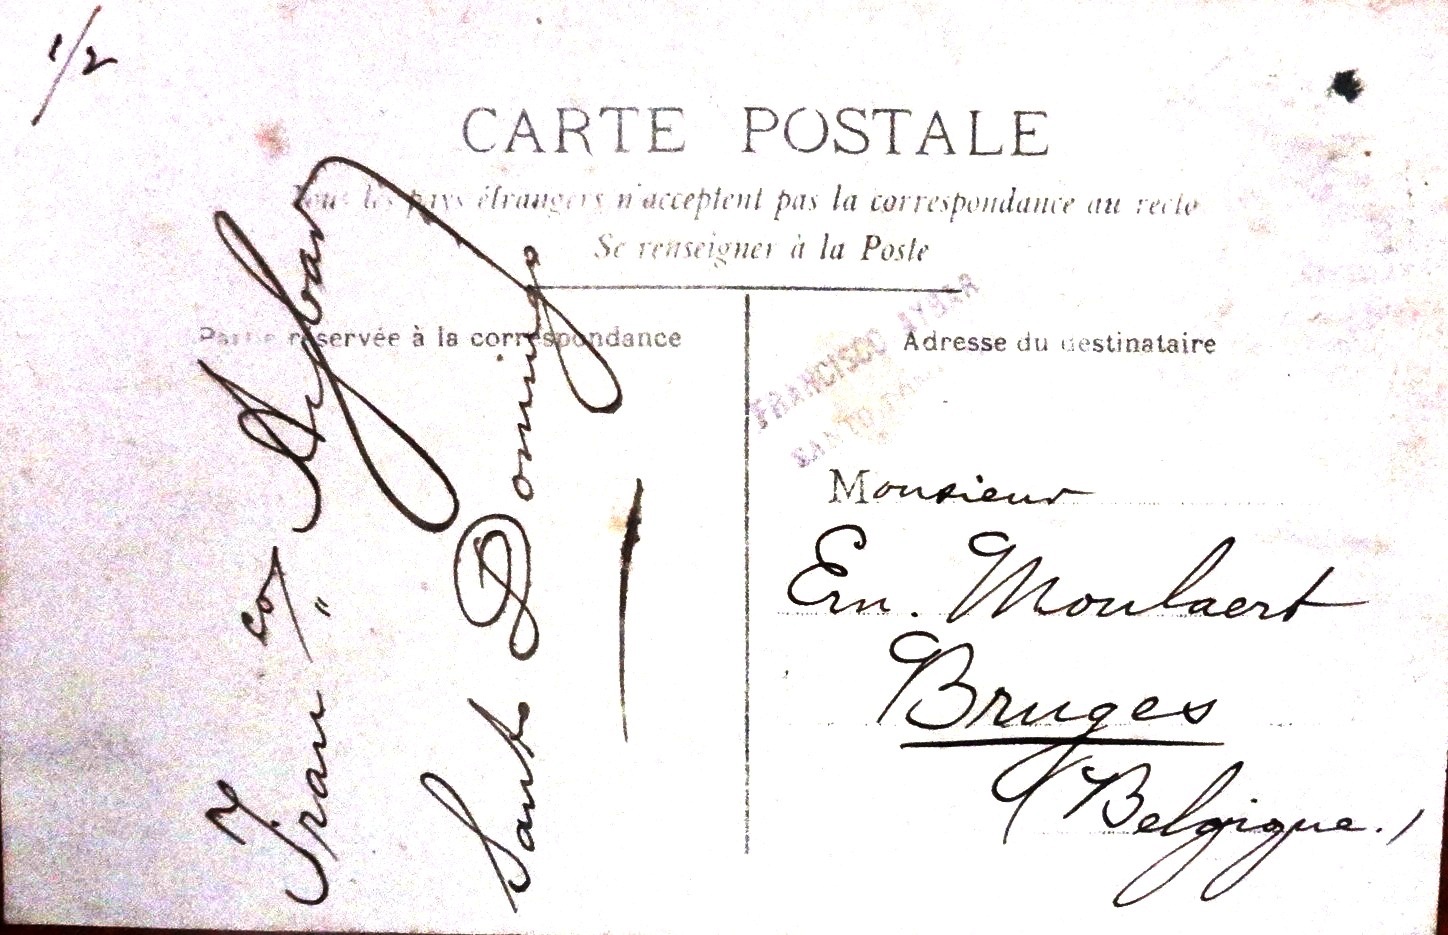 1/2
CARTE POSTALE
Tous les pays étrangers n'acceptent pas la correspondance au recto
Se renseigner à la Poste
Partie réservée à la correspondance
Fran^co Aybar
Santo Domingo
Adresse du destinataire
FRANCISCO AYBAR
SANTO
Monsieur
Ern. Moulaert
Bruges
(Belgique.)